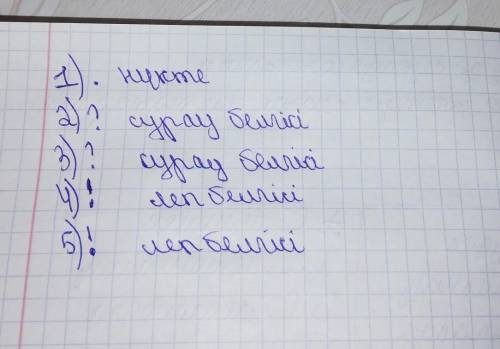 1) . нүкте
2) ? сұрау белгісі
3) ? сұрау белгісі
4) ! леп белгісі
5) ! леп белгісі